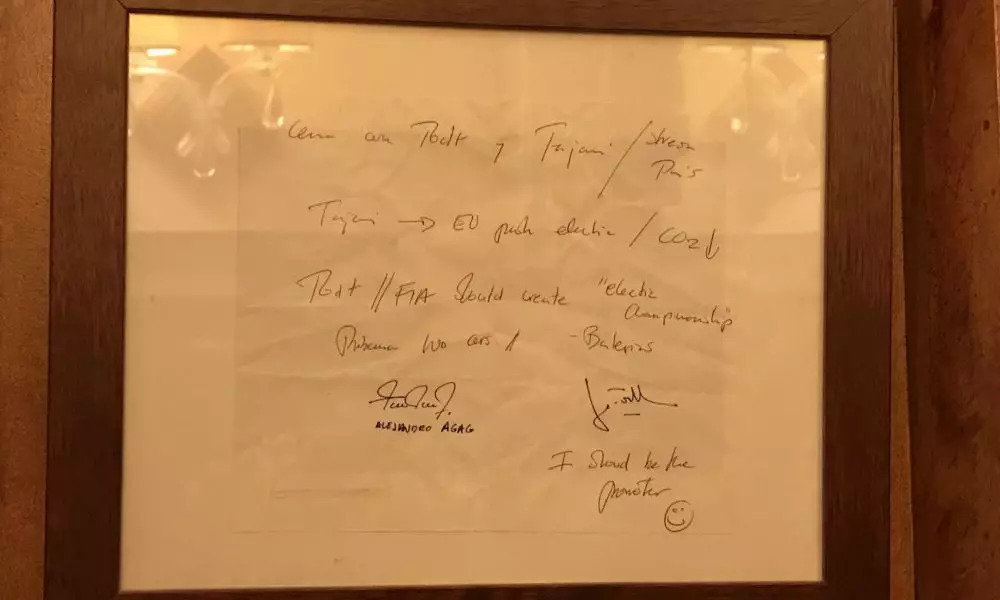 Cena con Todt y Tajani / Stresa
Paris
Tajani → EU push electric / CO2↓
Todt // FIA should create "electric
championship"
Problema no cars / - Baterias
ALEJANDRO AGAG
I should be the
promoter